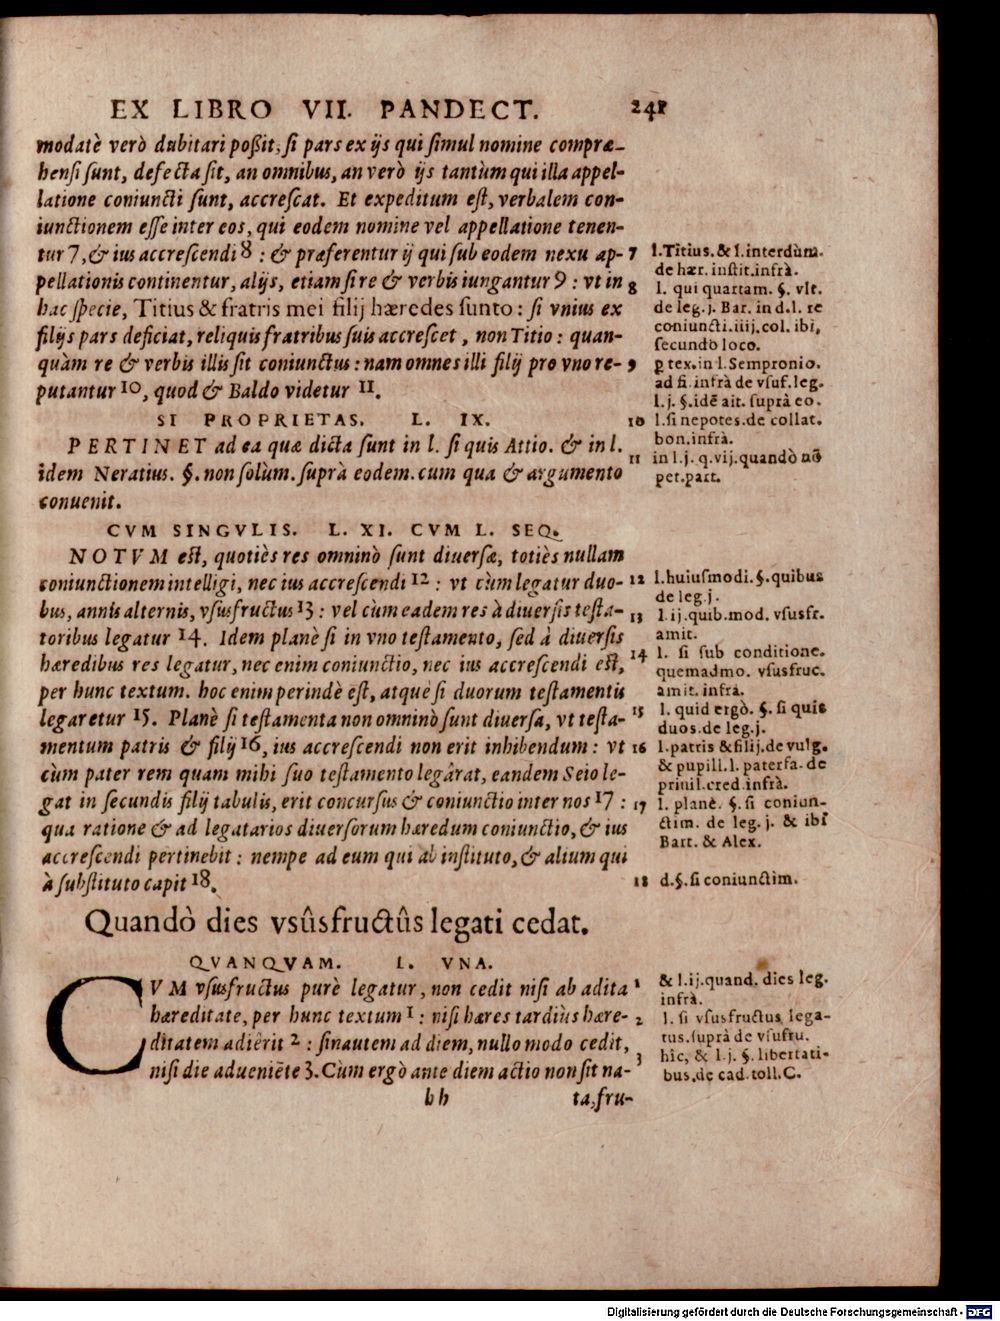 EX LIBRO VII. PANDECT. 241
modatè verò dubitari poßit, si pars ex ijs qui simul nomine compræ-
hensi sunt, defecta sit, an omnibus, an verò ijs tantùm qui illa appel-
latione coniuncti sunt, accrescat. Et expeditum est, verbalem con-
iunctionem esse inter eos, qui eodem nomine vel appellatione tenen-
tur 7, & ius accrescendi 8 : & præferentur ij qui sub eodem nexu ap-
pellationis continentur, alijs, etiamsi re & verbis iungantur 9 : vt in
hac specie, Titius & fratris mei filij hæredes sunto : si vnius ex
filijs pars deficiat, reliquis fratribus suis accrescet, non Titio : quan-
quàm re & verbis illis sit coniunctus : nam omnes illi filij pro vno re-
putantur 10, quod & Baldo videtur 11.
SI PROPRIETAS. L. IX.
PERTINET ad ea quæ dicta sunt in l. si quis Attio. & in l.
idem Neratius. §. non solùm. suprà eodem. cum qua & argumento
conuenit.
CVM SINGVLIS. L. XI. CVM L. SEQ.
NOTVM est, quotiès res omninò sunt diuersæ, totiès nullam
coniunctionem intelligi, nec ius accrescendi 12 : vt cùm legatur duo-
bus, annis alternis, vsusfructus 13 : vel cùm eadem res à diuersis testa-
toribus legatur 14. Idem planè si in vno testamento, sed à diuersis
hæredibus res legatur, nec enim coniunctio, nec ius accrescendi est,
per hunc textum. hoc enim perindè est, atque si duorum testamentis
legaretur 15. Planè si testamenta non omninò sunt diuersa, vt testa-
mentum patris & filij 16, ius accrescendi non erit inhibendum : vt
cùm pater rem quam mihi suo testamento legârat, eandem Seio le-
gat in secundis filij tabulis, erit concursus & coniunctio inter nos 17 :
qua ratione & ad legatarios diuersorum hæredum coniunctio, & ius
accrescendi pertinebit : nempe ad eum qui ab instituto, & alium qui
à substituto capit 18.
Quandò dies vsûsfructûs legati cedat.
QVANQVAM. L. VNA.
CVM vsusfructus purè legatur, non cedit nisi ab adita
hæreditate, per hunc textum 1 : nisi hæres tardiùs hære-
ditatem adierit 2 : sinautem ad diem, nullo modo cedit,
nisi die adueniēte 3. Cùm ergò ante diem actio non sit na-
hh ta, fru-
7 l. Titius. & l. interdùm.
de hær. instit. infrà.
8 l. qui quartam. §. vlt.
de leg. j. Bar. in d. l. re
coniuncti. iiij. col. ibi,
secundo loco.
9 p tex. in l. Sempronio.
ad fi. infrà de vsuf. leg.
l. j. §. idē ait. suprà eo.
10 l. si nepotes. de collat.
bon. infrà.
11 in l. j. q. vij. quandò nō
pet. part.
12 l. huiusmodi. §. quibus
de leg. j.
13 l. ij. quib. mod. vsusfr.
amit.
14 l. si sub conditione.
quemadmo. vsusfruc.
amit. infra.
15 l. quid ergò. §. si quis
duos. de leg. j.
16 l. patris & filij. de vulg.
& pupill. l. paterfa. de
priuil. cred. infrà.
17 l. planè. §. si coniun-
ctim. de leg. j. & ibi
Bart. & Alex.
18 d. §. si coniunctim.
1 & l. ij. quand. dies leg.
infrà.
2 l. si vsusfructus lega-
tus. suprà de vsufru.
3 hîc, & l. j. §. libertati-
bus. de cad. toll. C.
Digitalisierung gefördert durch die Deutsche Forschungsgemeinschaft - DFG